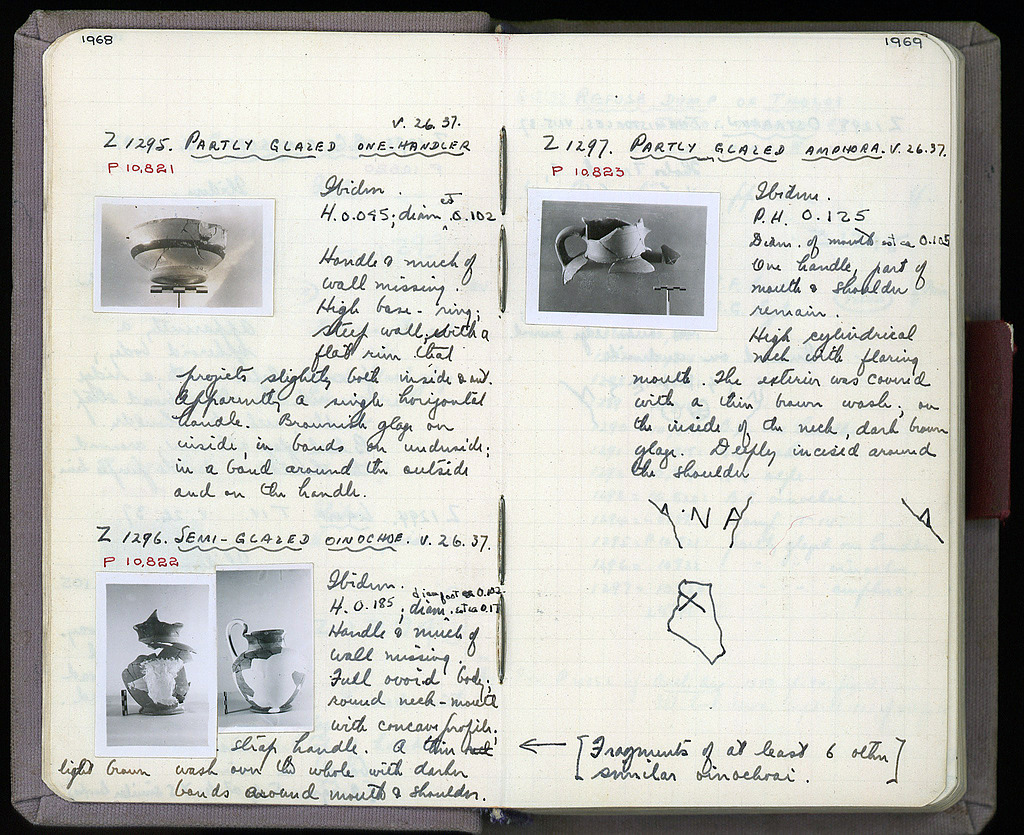 1968
V. 26. 37.
Z 1295. PARTLY GLAZED ONE-HANDLER
P 10,821
Ibidem.
H. 0.095; diam est 0.102
Handle & much of
wall missing.
High base-ring;
steep wall, with a
flat rim that
projects slightly both inside & out.
Apparently a single horizontal
handle. Brownish glaze on
inside, in bands on underside;
in a band around the outside
and on the handle.
Z 1296. SEMI-GLAZED OINOCHOE. V. 26. 37.
P 10,822
Ibidem. diam foot ca 0.102
H. 0.185; diam. est ca 0.17
Handle & much of
wall missing.
Full ovoid body;
round neck-mouth
with concave profile;
strap handle. A thin
light brown wash over the whole with darker
bands around mouth & shoulder.
1969
Z 1297. PARTLY GLAZED AMPHORA. V. 26. 37.
P 10,823
Ibidem.
P.H. 0.125
Diam. of mouth est ca 0.105
One handle, part of
mouth & shoulder
remain.
High cylindrical
neck with flaring
mouth. The exterior was covered
with a thin brown wash; on
the inside of the neck, dark brown
glaze. Deeply incised around
the shoulder
N A
X
← [Fragments of at least 6 other
similar oinochoai.]